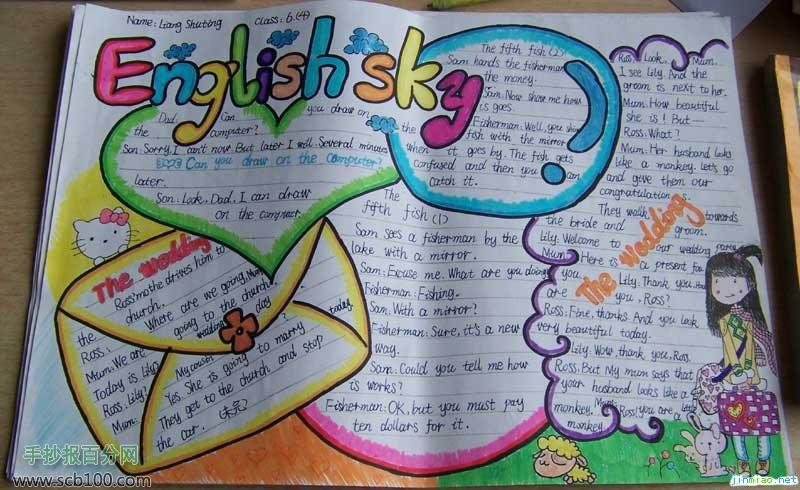 Name: Liang Shuting
Class: 6.(4)
English sky
Dad: Can you draw on
the computer?
Son: Sorry, I can't now But later I will. Several minutes
Can you draw on the computer?
later.
Son: Look, Dad, I can draw
on the computer.
The wedding
Ross' mo the drives him to
the church.
Ross: Where are we going, Mum
Mum: We are going to the church.
Today is Lily wedding day
Ross: Lily? My cousin? today
Mum: Yes. She is going to marry
They get to the church and stop
the car.
The
fifth fish (1)
Sam sees a fisherman by the
lake with a mirror.
Sam: Excuse me. What are you doing
Fisherman: Fishing.
Sam: With a mirror?
Fisherman: Sure, it's a new
way.
Sam: Could you tell me how
is works?
Fisherman: OK, but you must pay
ten dollars for it.
The fifth fish (2)
Sam hands the fisherman
the money.
Sam: Now show me how
is goes.
Fisherman: Well, you shine
the fish with the mirror
when it goes by. The fish gets
confused and then you can
catch it.
Ross: Look, Mum.
I see Lily. And the
groom is next to her.
Mum: How beautiful
she is! But—
Ross: What?
Mum: Her husband looks
like a monkey. let's go
and give them our
congratulation s.
They walk towards
the bride and groom.
Lily: Welcome to our wedding party
Mum: Here is a present for
you.
Lily: Thank you. How
are you, Ross?
Ross: Fine, thanks. And you look
very beautiful today.
Lily: Wow, thank you, Ross.
Ross: But My mum says that
your husband looks like a
monkey.
Mum: Ross! you are little
monkey
The wedding
手抄报百分网
www.scb100.com
jinmiao.net